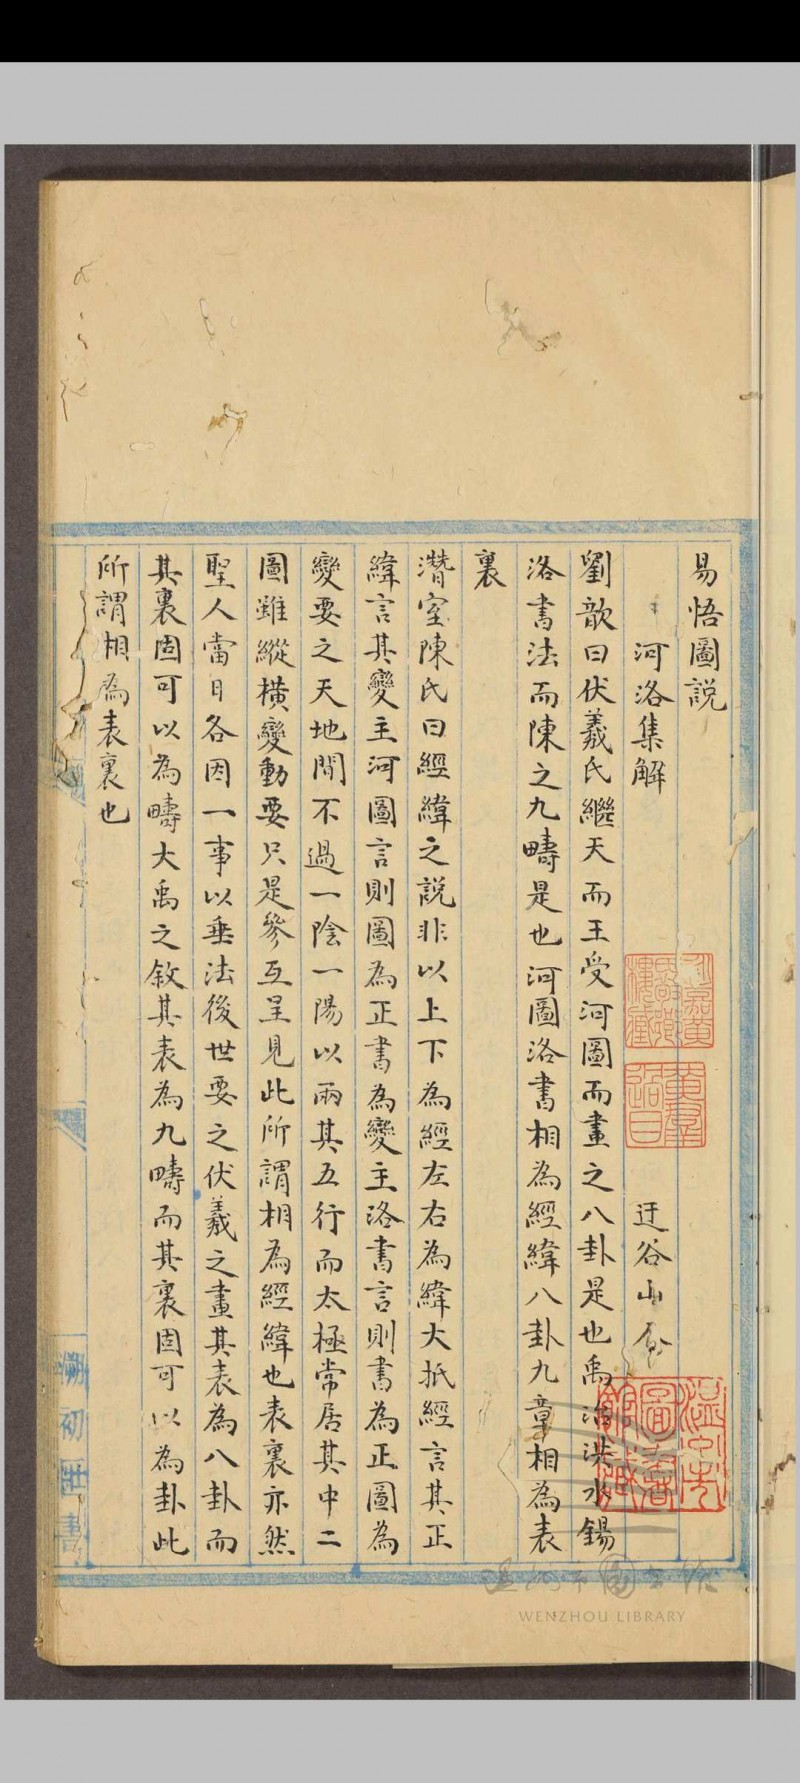 易悟圖說
河洛集解 迂谷山人
劉歆曰伏羲氏繼天而王受河圖而畫之八卦是也禹治洪水錫
洛書法而陳之九疇是也河圖洛書相為經緯八卦九章相為表
裏
潛室陳氏曰經緯之說非以上下為經左右為緯大抵經言其正
緯言其變主河圖言則圖為正書為變主洛書言則書為正圖為
變要之天地間不過一陰一陽以兩其五行而太極常居其中二
圖雖縱橫變動要只是參互呈見此所謂相為經緯也表裏亦然
聖人當日各因一事以垂法後世要之伏羲之畫其表為八卦而
其裏固可以為疇大禹之敘其表為九疇而其裏固可以為卦此
所謂相為表裏也
WENZHOU LIBRARY